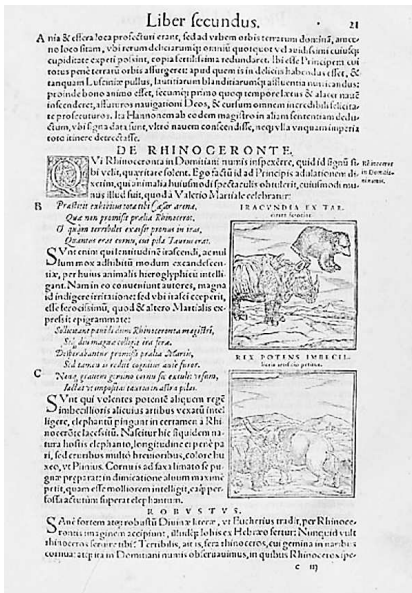 Liber secundus. 21
nia & essera loca profecturi erant, sed ad vrbem orbis terrarum dominā, amœ-
no loco sitam, vbi rerum deliciarumq; omniū quotquot vel auidissimi cuiusq;
cupiditate expeti possint, copia fertilissima redundaret. Ibi esse Principem cui
totus penè terrarū orbis assurgeret: apud quem iis in deliciis habendas esset, &
tanquam Luciniæ pullus, lautiarum blanditiarumq; affluentia nutricandus:
proinde bono animo esset, secumq; primo quoq; tempore lætus & alacer nauē
inscenderet, assaturos nauigationi Deos, & cursum omnem incredibili felicita-
te prosecuturos. Ita Hannonem ab eodem magistro in aliam sententiam dedu-
ctum, vbi signa data sunt, vltro nauem conscendisse, nequilla vnquam imperia
toto itinere detrectasse.
DE RHINOCERONTE.
QVi Rhinoceronta in Domitiani numis inspexêre, quid id signū si-
bi velit, quæritare solent. Ego factū id ad Principis adulationem di-
xerim, qui animalia huiusmodi spectaculis obtulerit, cuiusmodi mu-
nus illud fuit, quod à Valerio Martiale celebratur:
Rhinoceros
in Domi-
tiani numis.
B
Præstitit exhibitus tota tibi Cæsar arena,
Quæ non promisit prælia Rhinoceros.
O quàm terribiles exarsit pronus in iras,
Quantus erat cornu, cui pila Taurus erat.
IRACVNDIA EX TAR-
ditate ferocior.
SVnt enim qui lentitudinē irascendi, ac nul
lum mox adhibitū modum excandescen-
tiæ, per huius animalis hieroglyphicū intelli
gant. Nam in eo conueniunt autores, magna
id indigere irritatione: sed vbi irasci cœperit,
esse ferocissimū, quod & altero Martialis ex-
presit epigrammate:
Sollicitant pauidi dum Rhinocerota magistri,
Seq; diu magnæ colligit ira feræ.
Desperabantur promissi prælia Martis,
Sed tamen is rediit cognitus antè furor.
C
Nanq; grauem gemino cornu sic extulit vrsum,
Iactat vt impositas taurus in astra pilas.
REX POTENS IMBECIL-
SVnt qui volentes potentē aliquem regē
imbecillioris alicuius artibus vexatū intel
ligere, elephantū pingunt in certamen à Rhi
nocerōte lacessitū. Nascitur hic siquidem na
tura hostis elephanto, longitudine ei penè pa
ri, sed cruribus multò breuioribus, colore bu
xeo, vt Plinius. Cornu is ad saxa limato se pu-
gnæ præparat: in dimicatione aluum maximè
petit, quam esse molliorem intelligit, eáq; per-
fossa actutùm superat elephantum.
ROBVSTVS.
SAnè fortem atq; robustū Diuinæ literæ, vt Eucherius tradit, per Rhinoce-
rontis imaginem accipiunt, illudq; Iobis ex Hebræo fertur: Nunquid vult
rhinoceros seruire tibi? Terribilis, ait is, fera rhinoceros, cui gemina in naribus
cornua: atq; ita in Domitiani numis obseruauimus, in quibus Rhinoceros spe-
c iij